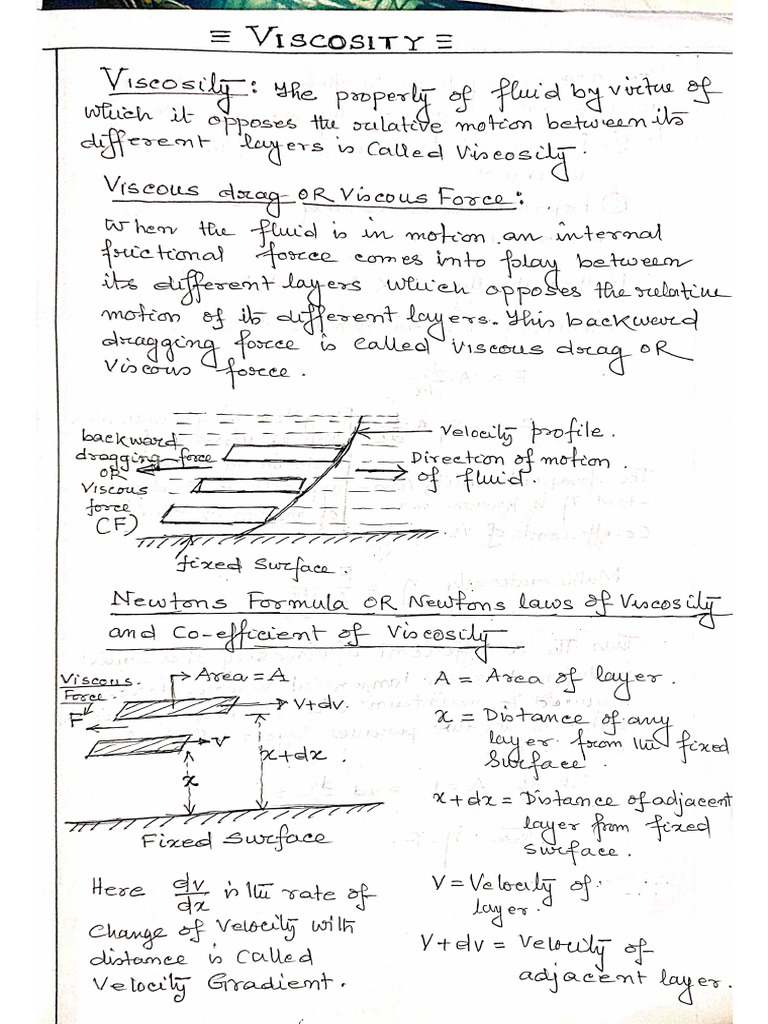 ≡ VISCOSITY ≡
Viscosity: The property of fluid by virtue of
which it opposes the relative motion between its
different layers is called viscosity.
Viscous drag OR Viscous Force:
When the fluid is in motion an internal
frictional force comes into play between
its different layers which opposes the relative
motion of its different layers. This backward
dragging force is called viscous drag OR
Viscous force.
backward
dragging force
OR
Viscous
force
(CF)
Velocity profile.
Direction of motion
of fluid.
fixed surface.
Newtons Formula OR Newtons laws of Viscosity
and Co-efficient of Viscosity
Viscous
Force
F
Area = A
V+dv
V
x
x+dx
Fixed Surface
A = Area of layer.
x = Distance of any
layer from the fixed
surface.
x+dx = Distance of adjacent
layer from fixed
surface.
V = Velocity of
layer.
V+dv = Velocity of
adjacent layer.
Here dv/dx is the rate of
change of velocity with
distance is called
Velocity Gradient.